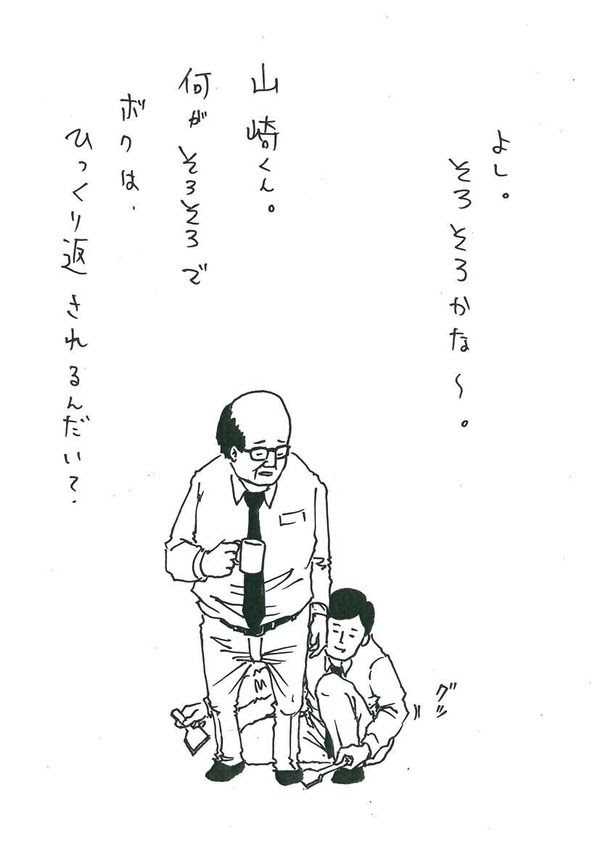 よし。
そろそろかな〜。
山崎くん。
何がそろそろで
ボクは、
ひっくり返されるんだい？
グッ